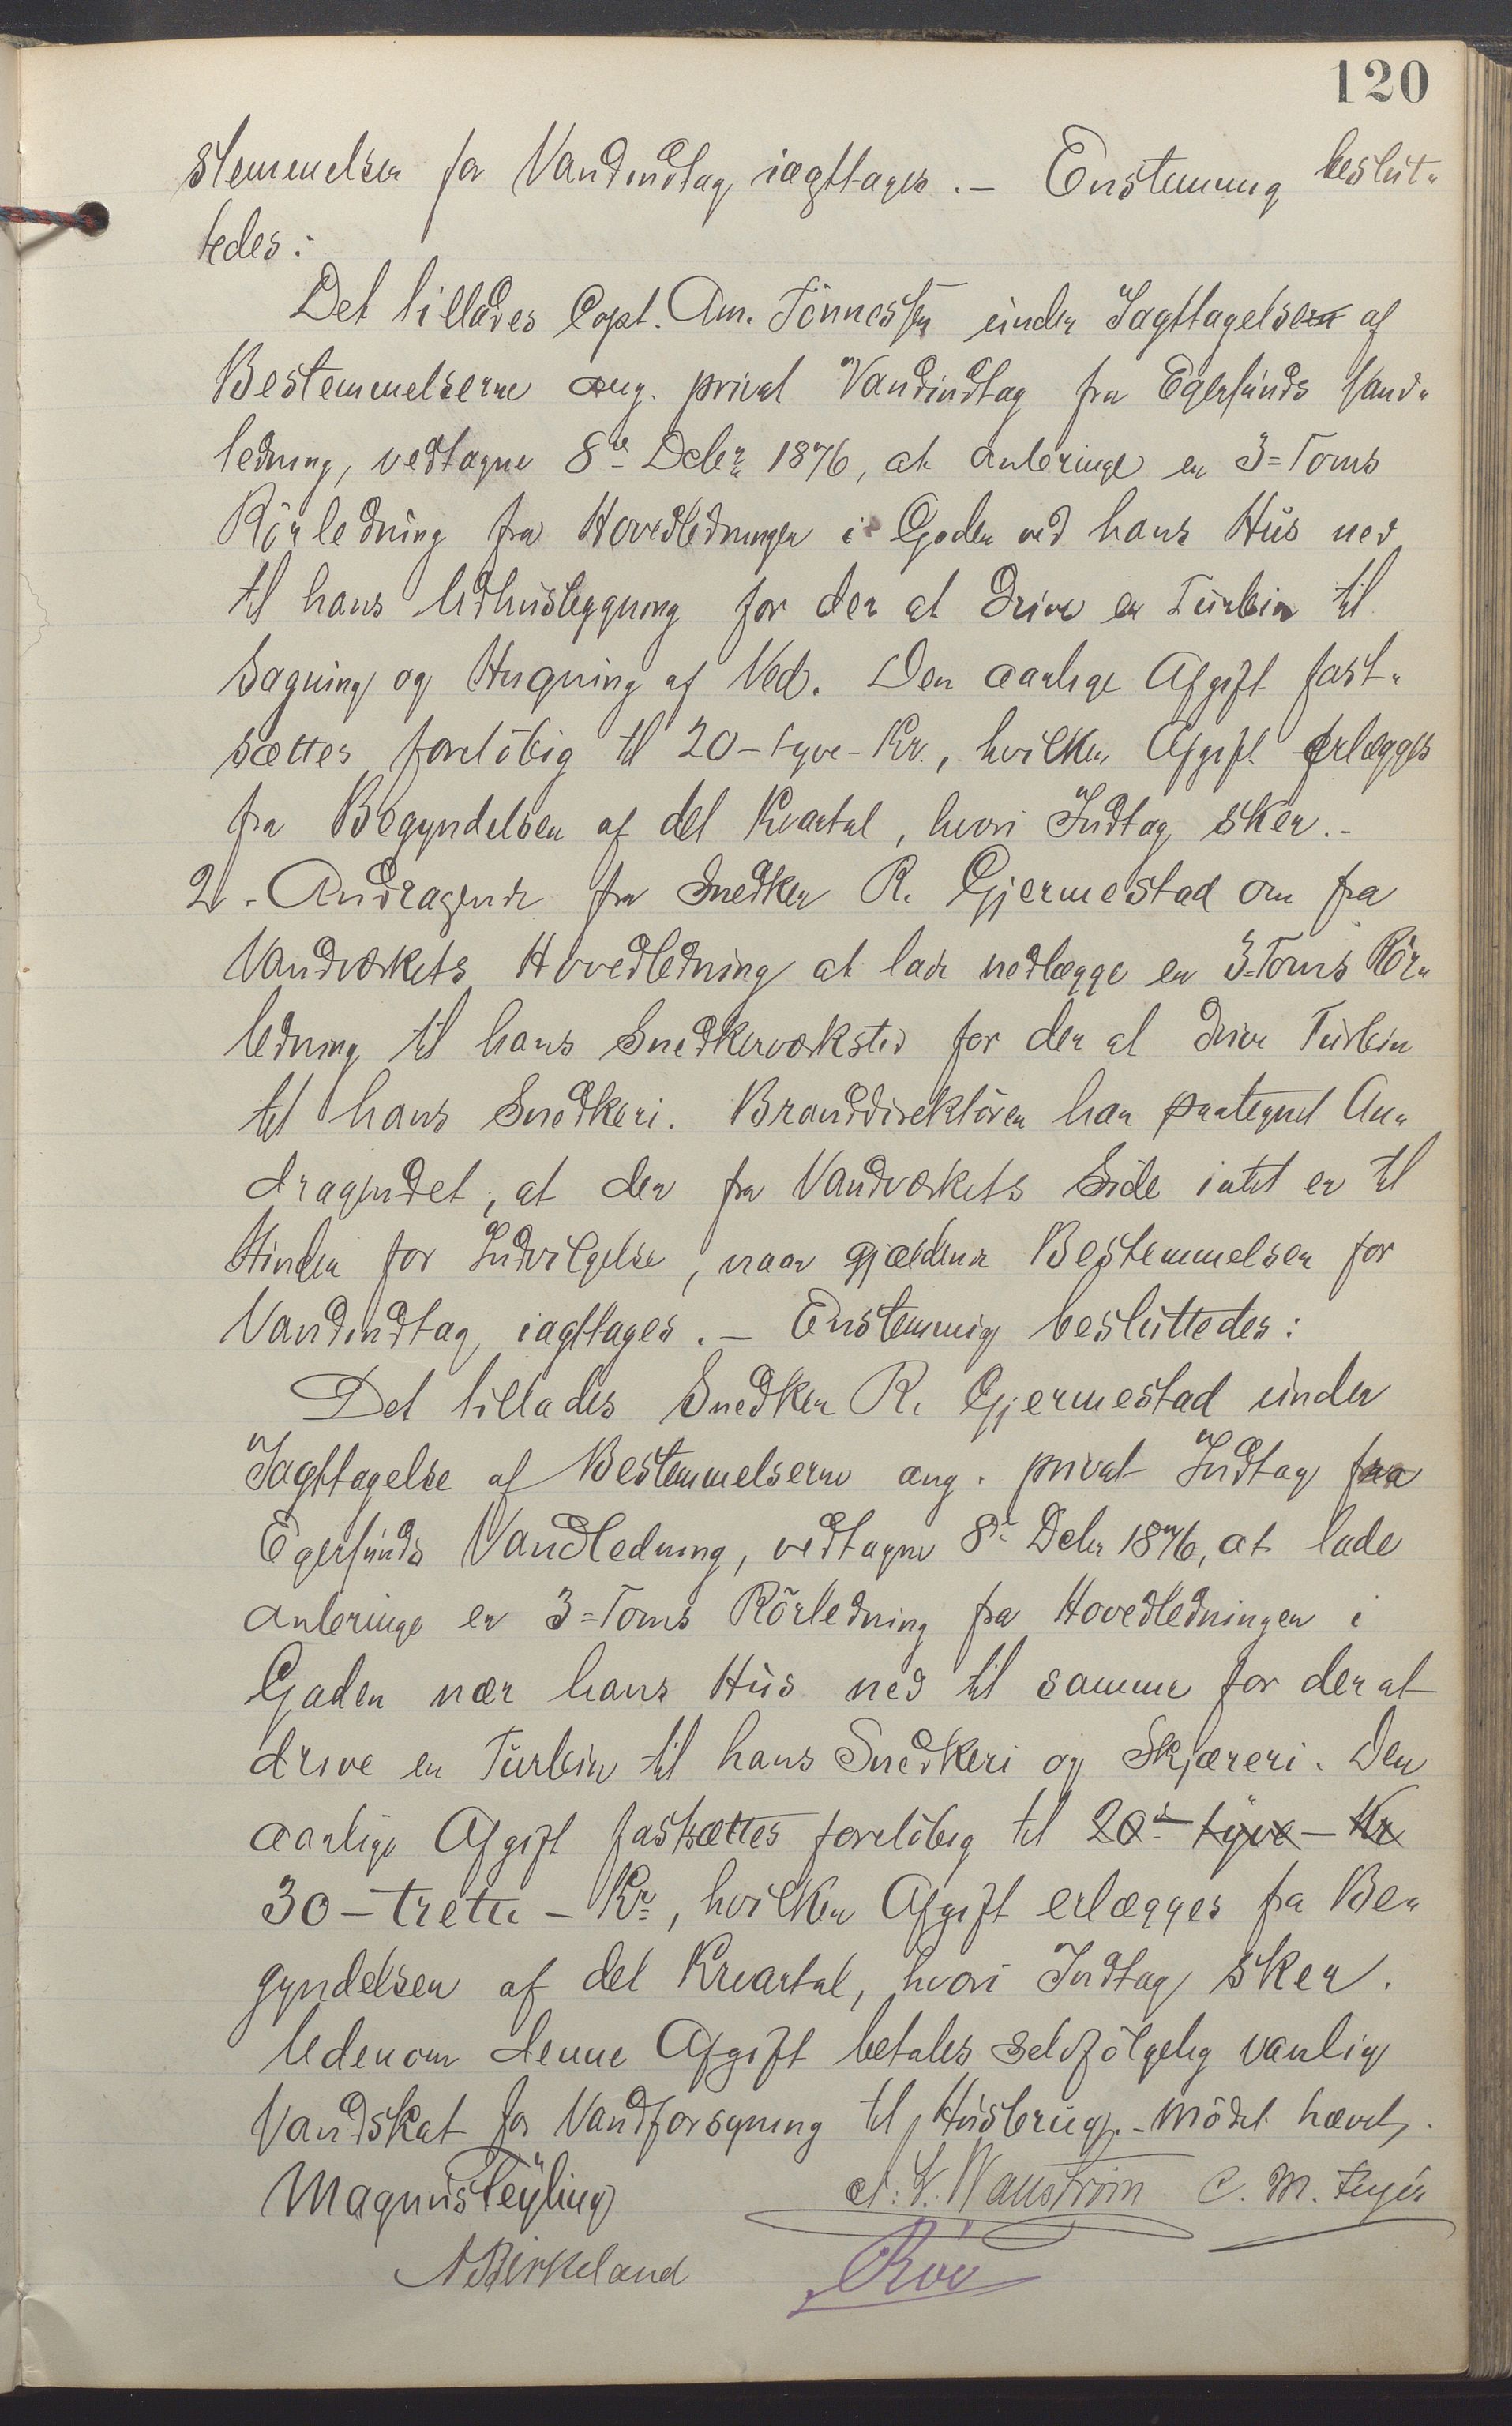 120
stemmelser for Vandindtag iagttages. — Enstemmig beslut-
tedes:
Det tillades Capt. Am. Tönnessen under Iagttagelse af
Bestemmelserne ang. privat Vandindtag fra Egersunds Vand-
ledning, vedtagne 8de Decbr 1876, at anbringe en 3=Toms
Rörledning fra Hovedledningen i Gaden ved hans Hus ned
til hans Udhusbygning for der at drive en Turbin til
Sagning og Hugning af Ved. Den aarlige Afgift fast-
sættes foreløbig til 20 - tyve - Kr., hvilken Afgift erlægges
fra Begyndelsen af det Kvartal, hvori Indtag sker. -
2. Andragende fra Snedker R. Gjermestad om fra
Vandværkets Hovedledning at lade nedlægge en 3=Toms Rör-
ledning til hans Snedkerværksted for der at drive Turbin
til hans Snedkeri. Branddirektören har paategnet An-
dragendet, at der fra Vandværkets Side intet er til
Hinder for Indvilgelse, naar gjældende Bestemmelser for
Vandindtag iagttages. — Enstemmig besluttedes:
Det tillades Snedker R. Gjermestad under
Iagttagelse af Bestemmelserne ang. privat Indtag fra
Egersunds Vandledning, vedtagne 8de Decbr 1876, at lade
anbringe en 3=Toms Rörledning fra Hovedledningen i
Gaden nær hans Hus ned til samme for der at
drive en Turbin til hans Snedkeri og Skjæreri. Den
aarlige Afgift fastsættes forelöbig til 20 - tyve - Kr
30 - tretti - Kr, hvilken Afgift erlægges fra Be-
gyndelsen af det Kvartal, hvori Indtag sker.
Udenom denne Afgift betales selvfölgelig vanlig
Vandskat for Vandforsyning til Husbrug. - Mödet hævet.
Magnus Feyling C. M. Feyer
A Birkeland